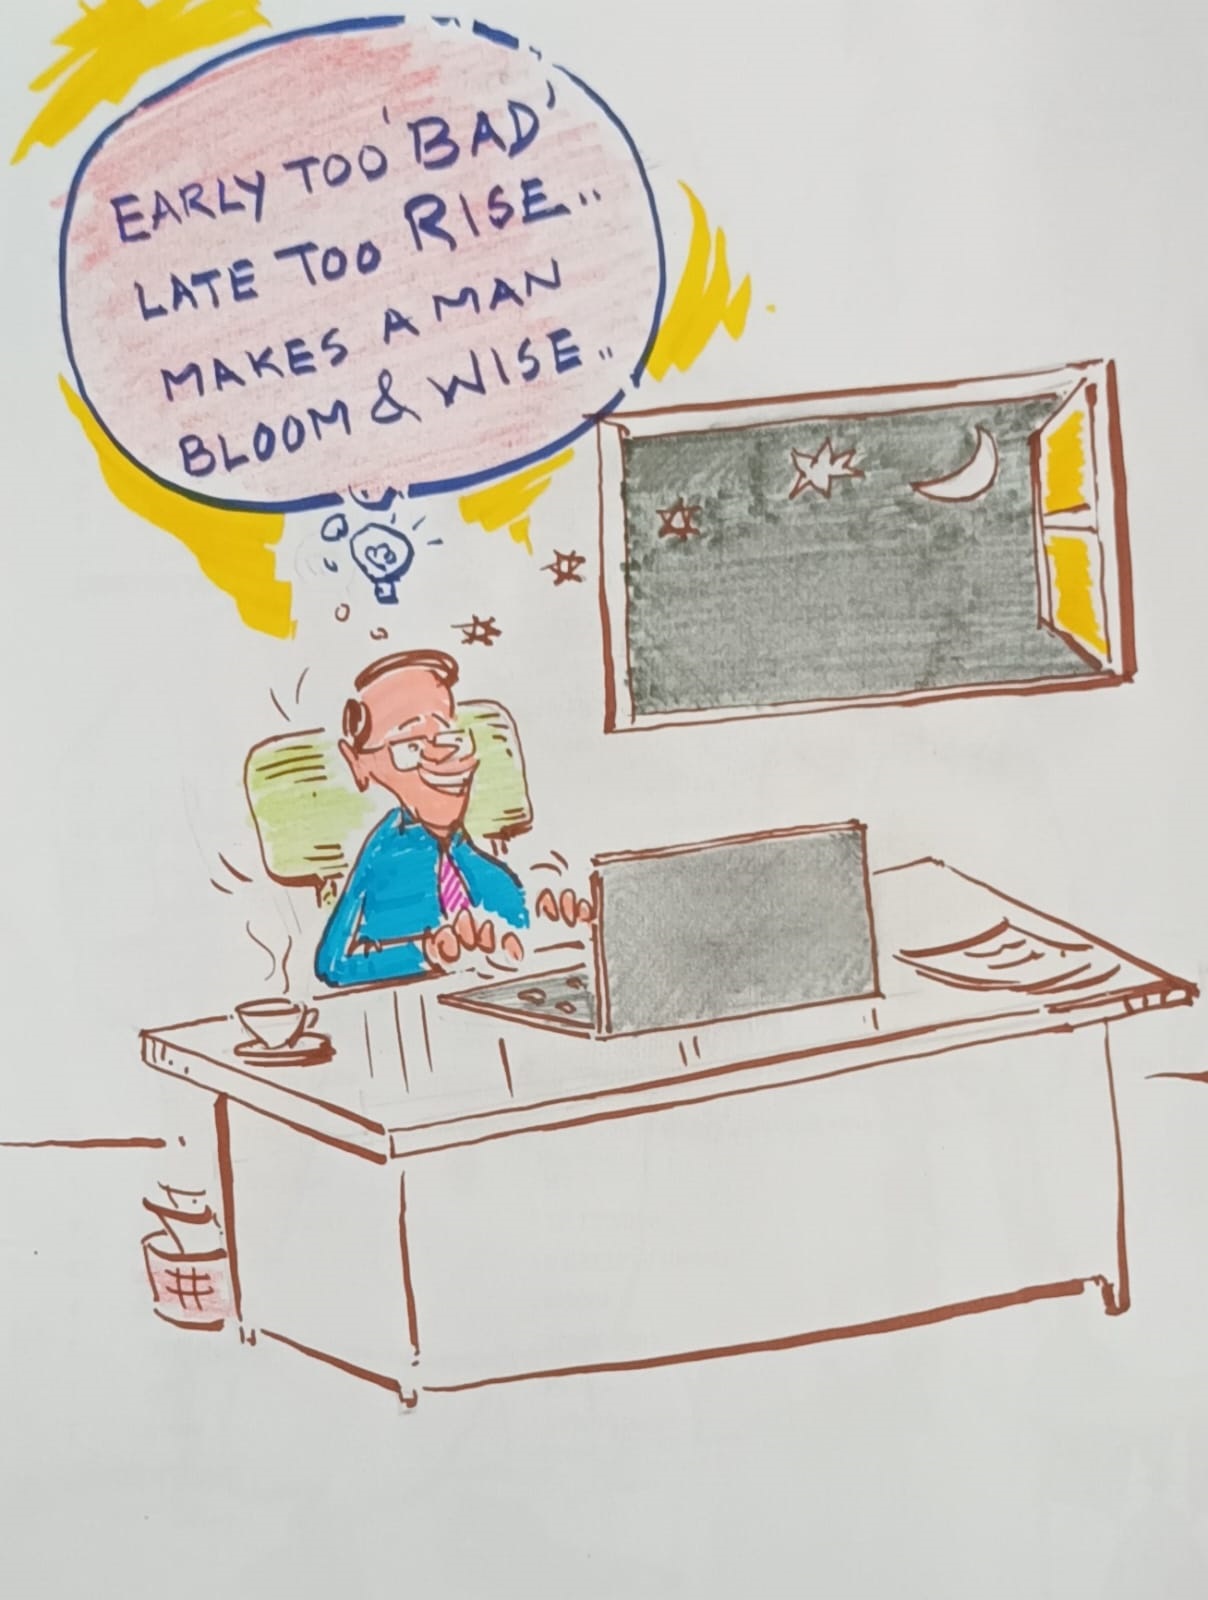 EARLY TOO 'BAD'
LATE TOO RISE..
MAKES A MAN
BLOOM & WISE..